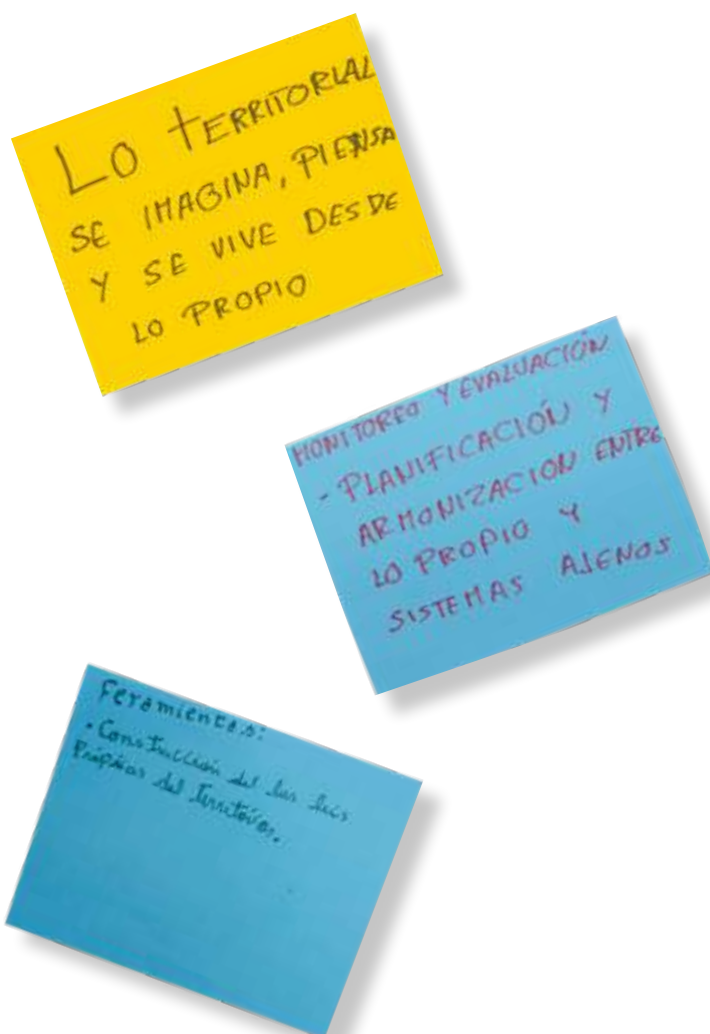 LO TERRITORIAL
SE IMAGINA, PIENSA
Y SE VIVE DESDE
LO PROPIO
MONITOREO Y EVALUACIÓN
- PLANIFICACIÓN Y
ARMONIZACION ENTRE
LO PROPIO Y
SISTEMAS AJENOS
Feramientas:
- Construccion del las
Propias del Territorios.